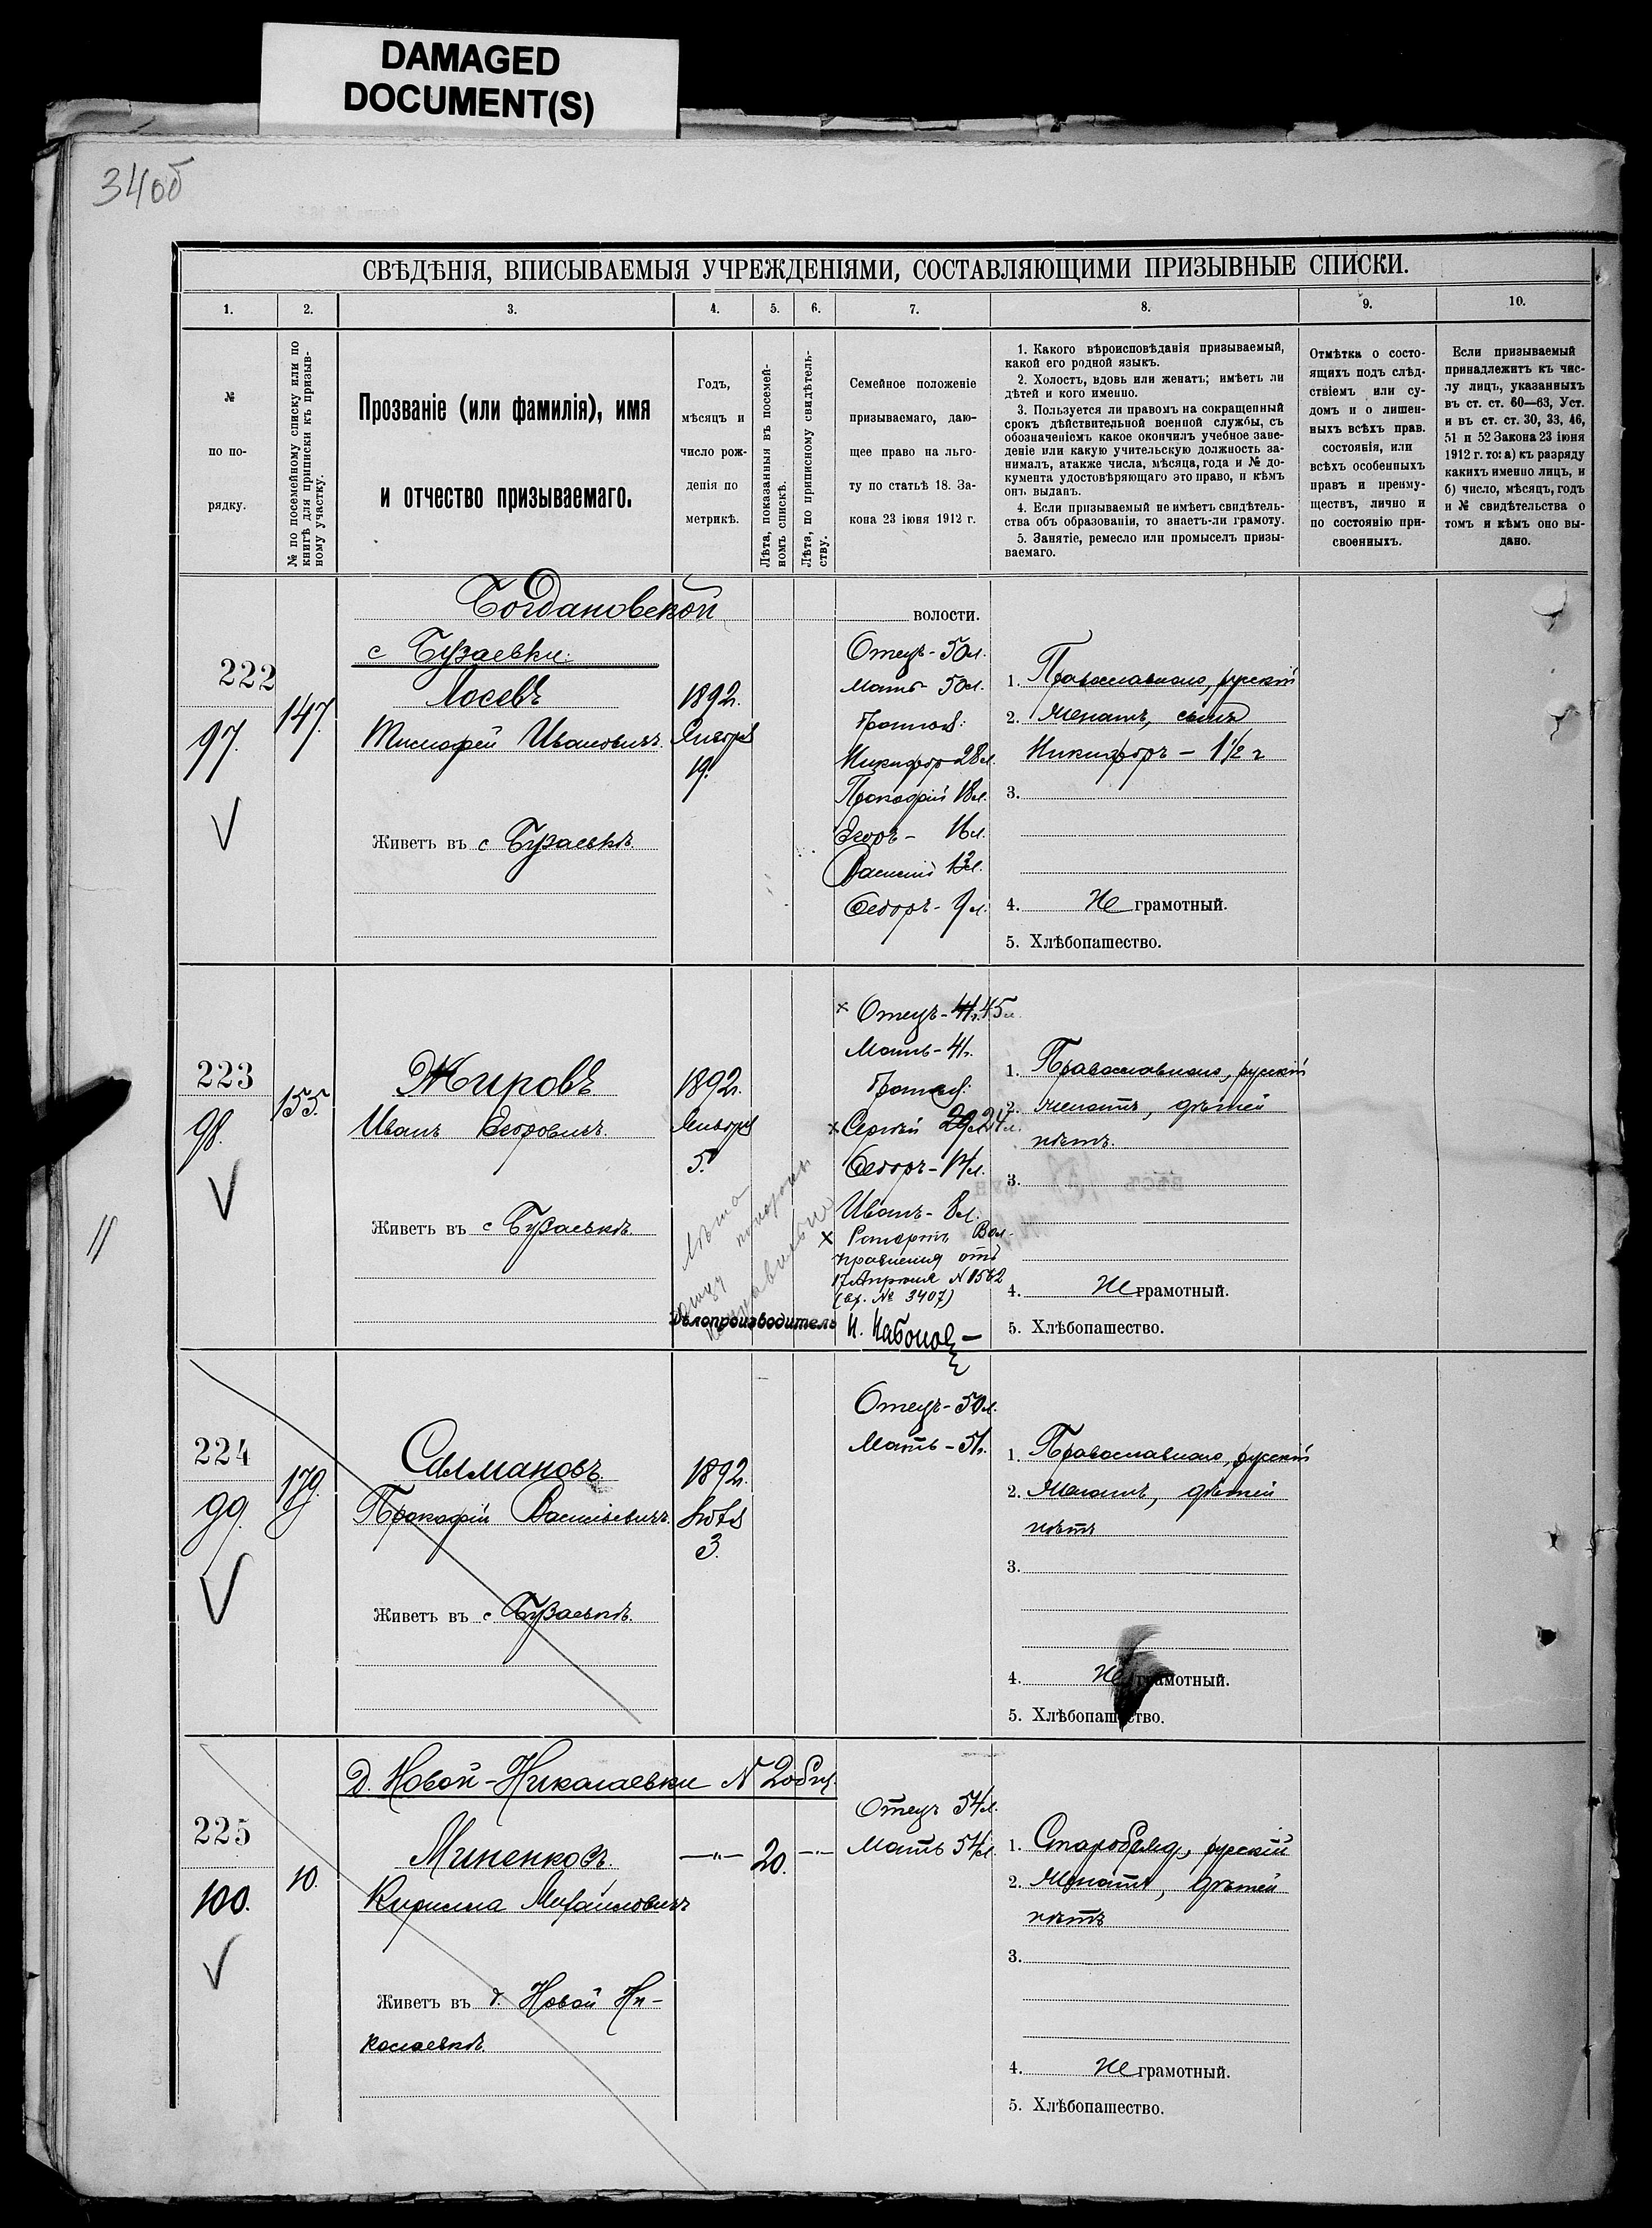 DAMAGED
DOCUMENT(S)
34об
СВѢДѢНІЯ, ВПИСЫВАЕМЫЯ УЧРЕЖДЕНІЯМИ, СОСТАВЛЯЮЩИМИ ПРИЗЫВНЫЕ СПИСКИ.
1. 2. 3. 4. 5. 6. 7. 8. 9. 10.
№
по по-
рядку.
№ по посемейному списку или по
книгѣ для приписки къ призыв-
ному участку.
Прозваніе (или фамилія), имя
и отчество призываемаго.
Годъ,
мѣсяцъ и
число рож-
денія по
метрикѣ.
Лѣта, показанныя въ посемей-
номъ спискѣ.
Лѣта, по приписному свидѣтель-
ству.
Семейное положеніе
призываемаго, даю-
щее право на льго-
ту по статьѣ 18. За-
кона 23 іюня 1912 г.
1. Какого вѣроисповѣданія призываемый,
какой его родной языкъ.
2. Холостъ, вдовъ или женатъ; имѣетъ ли
дѣтей и кого именно.
3. Пользуется ли правомъ на сокращенный
срокъ дѣйствительной военной службы, съ
обозначеніемъ какое окончилъ учебное заве-
деніе или какую учительскую должность за-
нималъ, атакже числа, мѣсяца, года и № до-
кумента удостовѣряющаго это право, и кѣмъ
онъ выданъ.
4. Если призываемый не имѣетъ свидѣтель-
ства объ образованіи, то знаетъ-ли грамоту.
5. Занятіе, ремесло или промыселъ призы-
ваемаго.
Отмѣтка о состо-
ящихъ подъ слѣд-
ствіемъ или су-
домъ и о лишен-
ныхъ всѣхъ прав.
состоянія, или
всѣхъ особенныхъ
правъ и преиму-
ществъ, лично и
по состоянію при-
своенныхъ.
Если призываемый
принадлежитъ къ чис-
лу лицъ, указанныхъ
въ ст. ст. 60—63, Уст.
и въ ст. ст. 30, 33, 46,
51 и 52 Закона 23 іюня
1912 г. то: а) къ разряду
какихъ именно лицъ, и
б) число, мѣсяцъ, годъ
и № свидѣтельства о
томъ и кѣмъ оно вы-
дано.
Богдановской волости.
с Бузаевки.
222
97.
147.
Лосевъ
Тимофей Ивановичъ.
Живетъ въ с Бузаевкѣ.
1892г.
Января
19.
Отецъ - 50л.
Мать - 50л.
Братья:
Никифор 28л.
Прокофій 18л.
Егоръ - 16л.
Василій 12л.
Федоръ - 9л.
1. Православнаго, русскій
2. Женатъ, сынъ
Никифоръ - 1½ г
3.
4. Не грамотный.
5. Хлѣбопашество.
223
98.
155.
Жировъ
Иванъ Егоровичъ.
Живетъ въ с Бузаевкѣ.
1892г.
Января
5.
Лѣта
Отецъ - 41г. 45л.
Мать - 41г.
Братья:
Сергѣй 24л.
Федоръ - 14л.
Иванъ - 8л.
Рапортъ Вол.
правленія отъ
17 Апрѣля № 1562
(вх. № 3407)
Дѣлопроизводитель
1. Православнаго, русскій
2. Женатъ, дѣтей
нѣтъ.
3.
4. Не грамотный.
5. Хлѣбопашество.
11
224
99.
179.
Салмановъ.
Прокофій Васильевичъ.
Живетъ въ с Бузаевкѣ.
1892.
Іюля
3.
Отецъ - 50л.
Мать - 51г.
1. Православнаго, русскій
2. Женатъ, дѣтей
нѣтъ
3.
4. Не грамотный.
5. Хлѣбопашество.
Д. Новой-Николаевки № 2 общ.
225
100.
10.
Миненковъ.
Кирилла Михайловичъ
Живетъ въ д. Новой Ни-
колаевкѣ.
—"— 20. —"—
Отецъ 54л.
Мать 54л.
1. Старобряд., русскій
2. Женатъ, дѣтей
нѣтъ
3.
4. Не грамотный.
5. Хлѣбопашество.